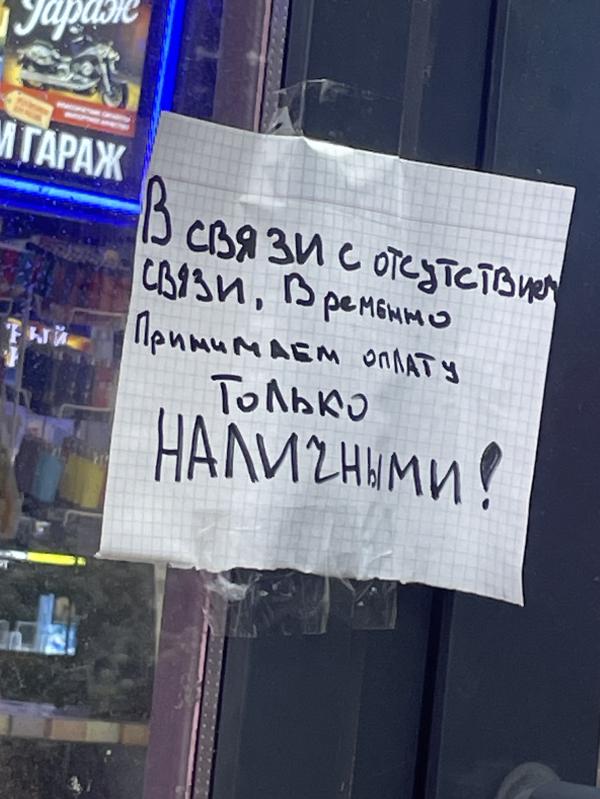 Гараж
М ГАРАЖ
В СВЯЗИ С ОТСУТСТВИЕМ
СВЯЗИ, Временно
Принимаем оплату
Только
НАЛИЧНЫМИ!